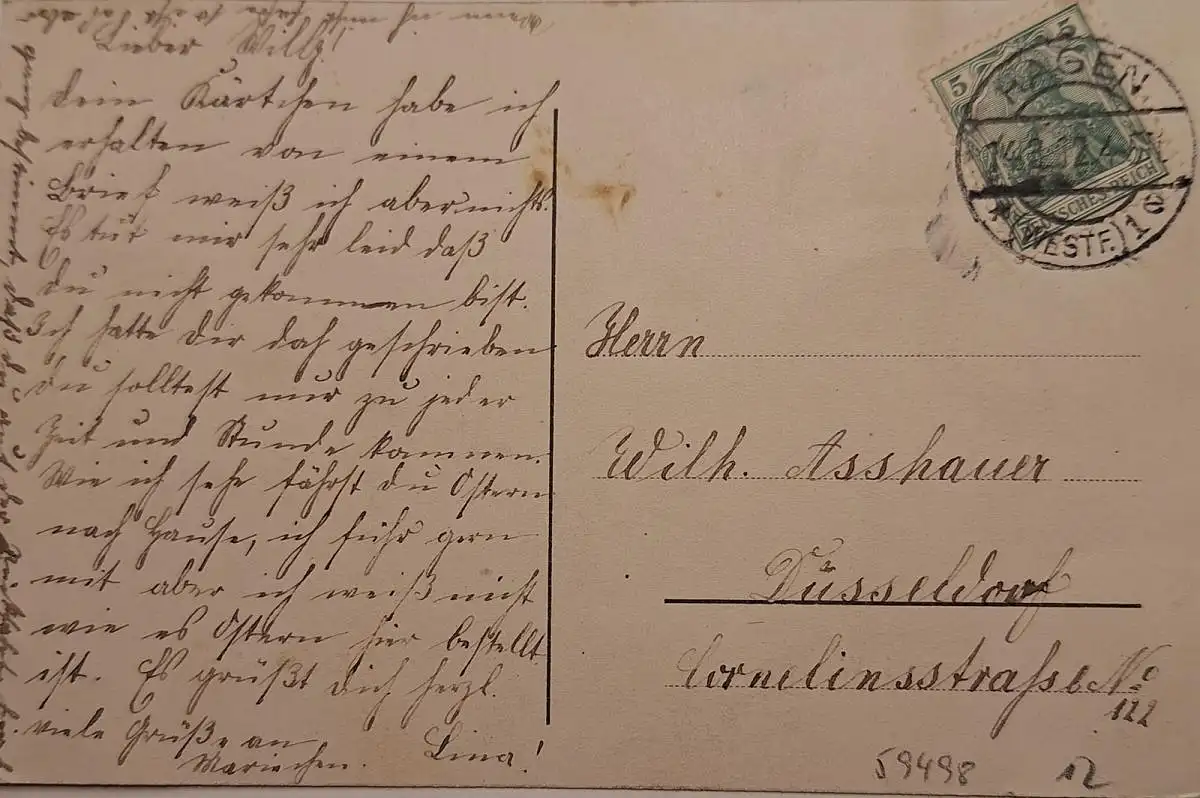 Lieber Willy!
dein Kärtchen habe ich
erhalten von einem
Brief weiß ich aber nichts.
Es tut mir sehr leid daß
du nicht gekommen bist.
Ich hatte dir doh geschrieben
du solltest nur zu jeder
Zeit und Stunde kommen.
Wie ich sehe fährst du Ostern
nach Hause, ich führ gern
mit aber ich weiß nicht
wie es Ostern hier bestellt
ist. Es grüßt dich herzl.
viele Grüße an
Mariechen. Lina!
ganz bestimmt, daß du auf der
Wenn ich nicht
5 5
DEUTSCHES REICH
HAGEN
(WESTF.) 1 e
Herrn
Wilh. Asshauer
Düsseldorf
Cornelinsstraße No
122
59498
12